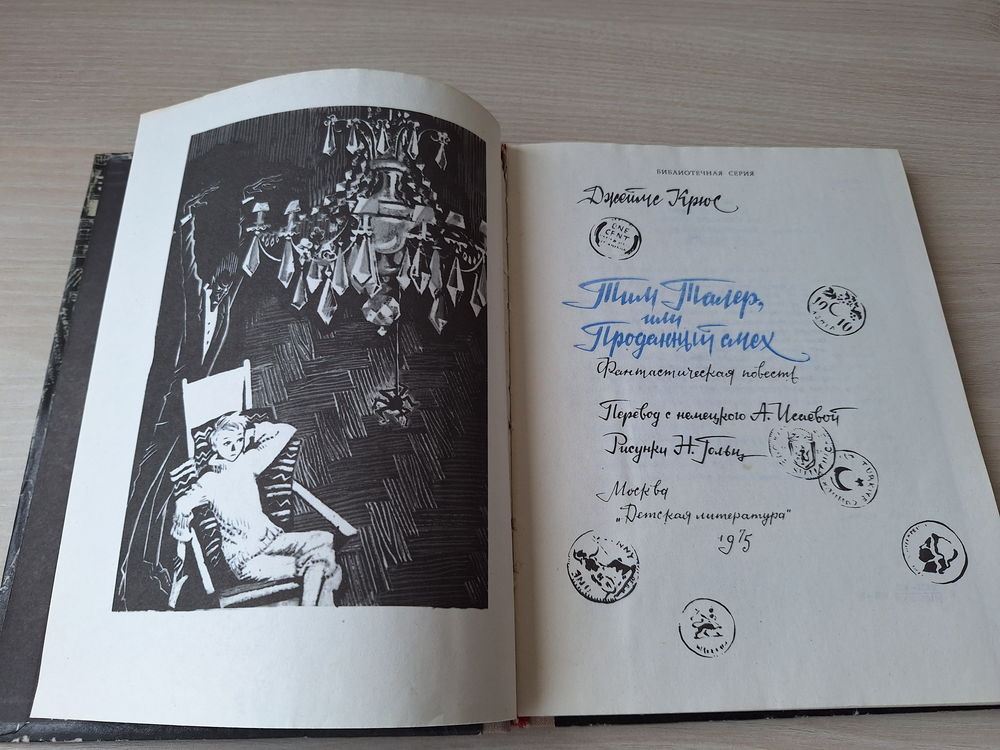 БИБЛИОТЕЧНАЯ СЕРИЯ
Джеймс Крюс
ONE
CENT
Тим Талер,
или
Проданный смех
Фантастическая повесть
Перевод с немецкого А. Исаевой
Рисунки Н. Гольц
Москва
"Детская литература"
1975